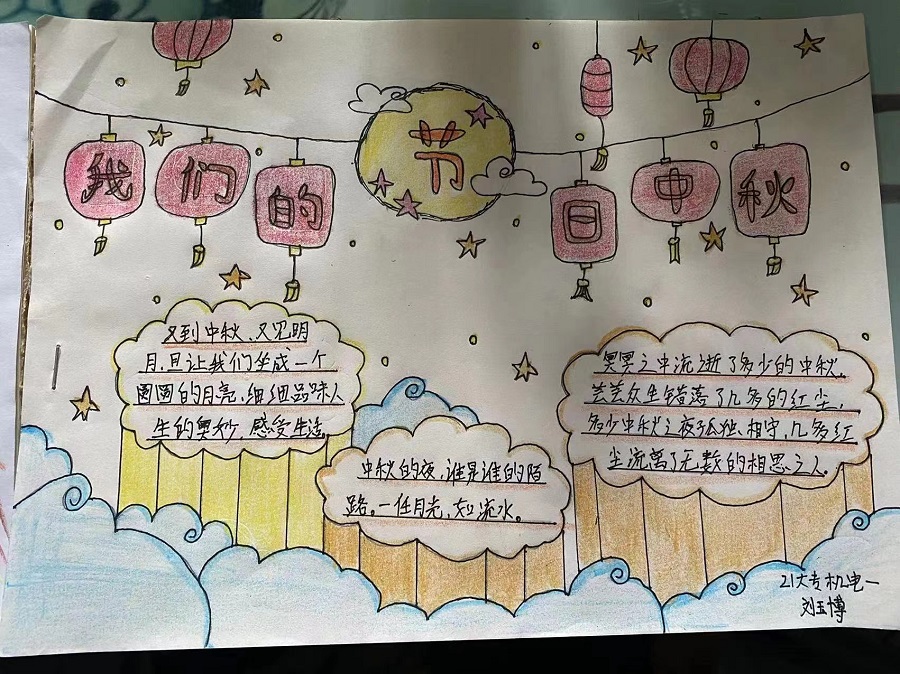 我们的节日中秋
又到中秋、又见明
月,且让我们坐成一个
圆圆的月亮,细细品味人
生的奥妙,感受生活。
中秋的夜,谁是谁的陌
路。一任月光,如流水。
冥冥之中流逝了多少的中秋,
芸芸众生错落了几多的红尘,
多少中秋之夜孤独相守,几多红
尘流离了无数的相思之人。
21大专机电一
刘玉博